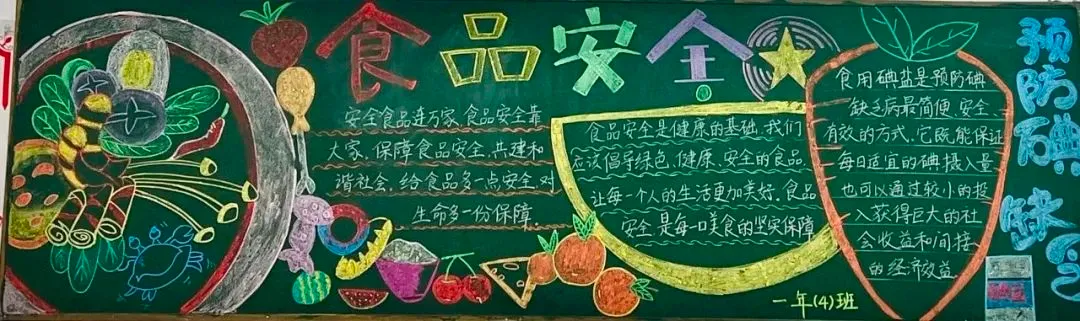 食品安全
安全食品进万家,食品安全靠
大家。保障食品安全,共建和
谐社会,给食品多一点安全,对
生命多一份保障。
食品安全是健康的基础,我们
应该倡导绿色、健康、安全的食品,
让每一个人的生活更加美好。食品
安全是每一口美食的坚实保障
食用碘盐是预防碘
缺乏病最简便、安全
有效的方式,它既能保证
每日适宜的碘摄入量
也可以通过较小的投
入获得巨大的社
会收益和间接
的经济效益
预防碘缺乏
一年(4)班